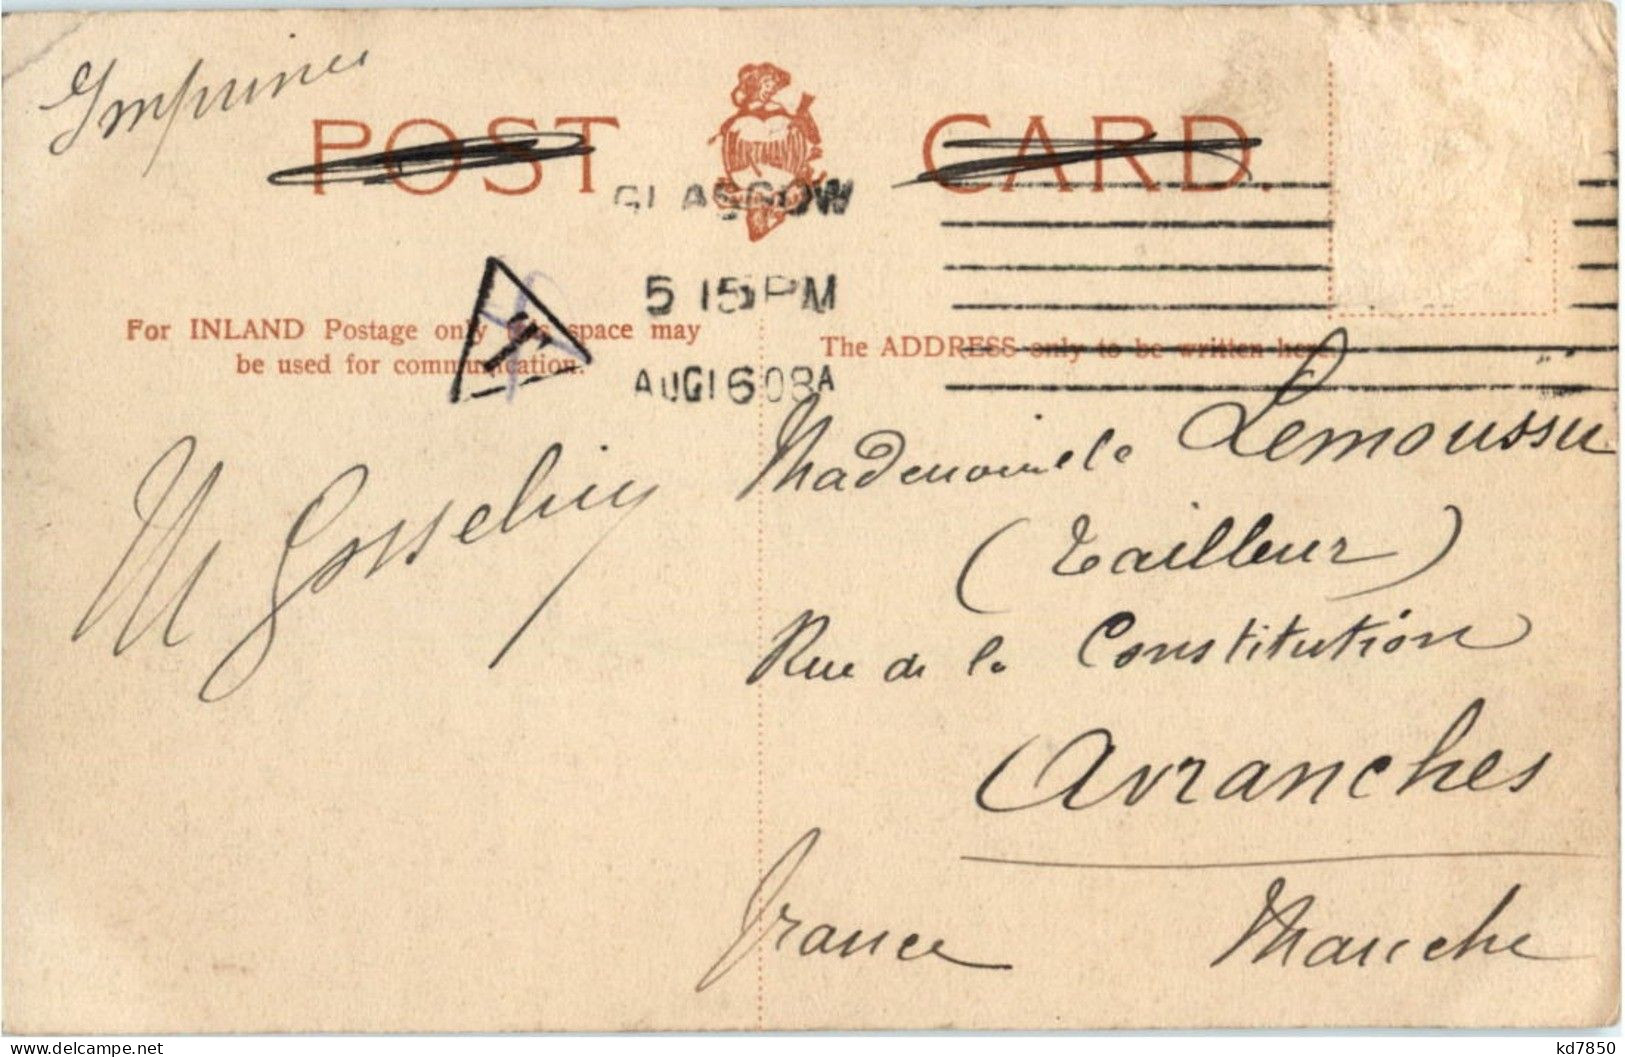 Imprimé
POST CARD.
HARTMANN
GLASGOW
5 15 PM
AUG 16 08 A
T
For INLAND Postage only this space may
be used for communication.
The ADDRESS only to be written here.
M Gosselin
Mademoiselle Lemoussu
(Tailleur)
Rue de la Constitution
Avranches
France Manche
kd7850